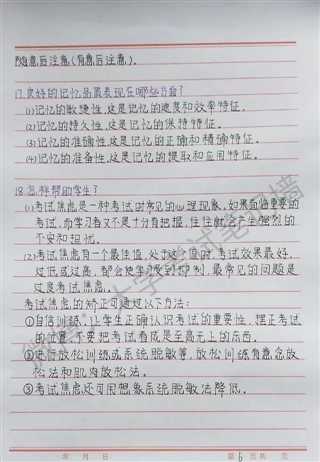 随意后注意(有意后注意).
17.良好的记忆品质表现在哪些方面?
(1)记忆的敏捷性,这是记忆的速度和效率特征.
(2)记忆的持久性,这是记忆的保持特征.
(3)记忆的准确性,这是记忆的正确和精确特征.
(4)记忆的准备性,这是记忆的提取和应用特征.
18.怎样帮助学生?
(1)考试焦虑是一种考试时常见的心理现象,如果面临重要的
考试,而学习者又不是十分有把握,往往就会产生强烈的
不安和担忧.
(2)考试焦虑有一个最佳值,处于这个值时,考试效果最好,
过低或过高,都会使学习受到抑制,最常见的问题是
过度考试焦虑.
考试焦虑的矫正可通过以下方法:
①自信训练,让学生正确认识考试的重要性,摆正考试
的位置,不要把考试看成是至高无上的东西.
②进行放松训练或系统脱敏等,放松训练有意念放
松法和肌肉放松法.
③考试焦虑还可用想象系统脱敏法降低.
年 月 日
第 6 页 共 页